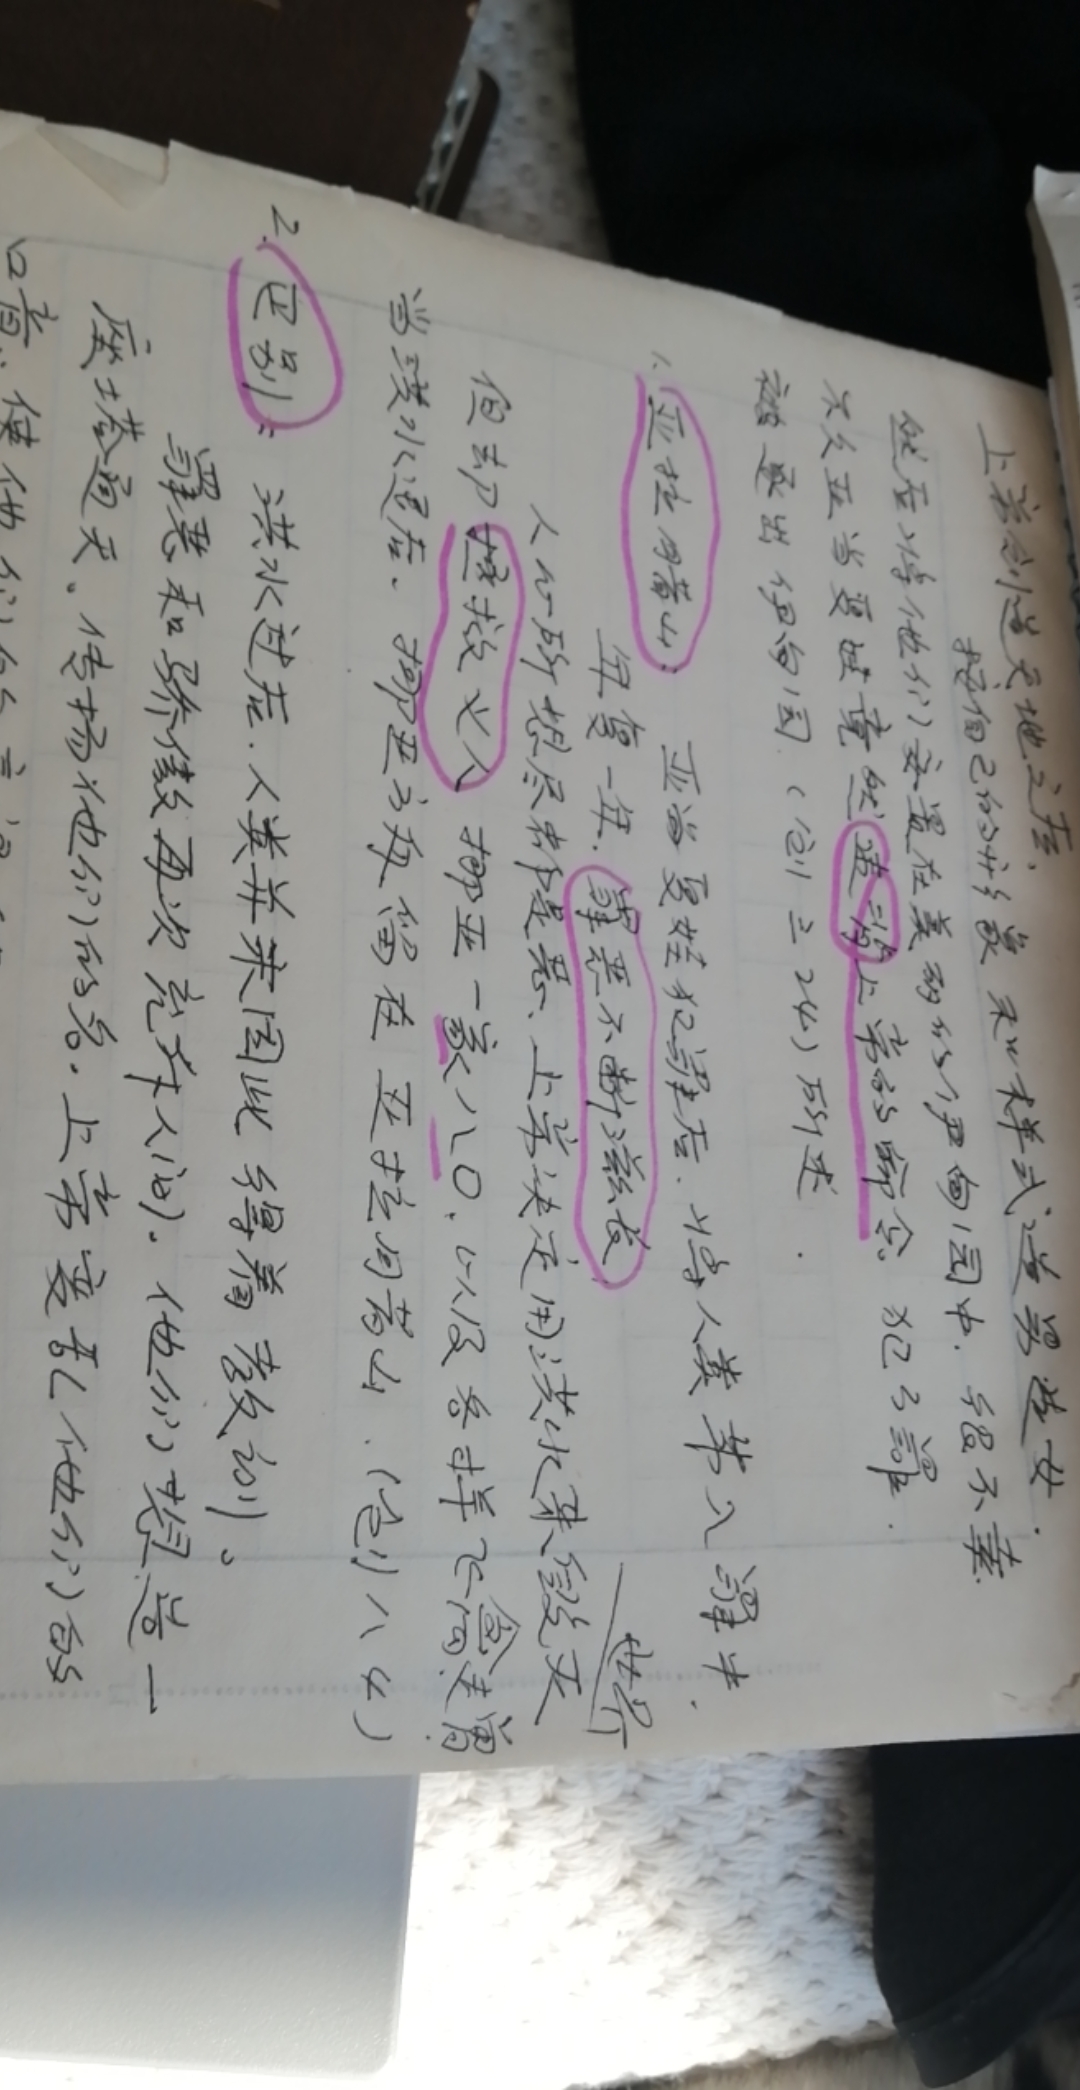 上帝创造天地之后,
按自己的形象和样式造男造女.
然后将他们安置在美丽的伊甸园中.
不久亚当夏娃竟然违背上帝的命令. 犯了罪.
被逐出伊甸园.(创三24)所述.
1. 亚拉腊山: 亚当夏娃犯罪后. 将人类带入罪中.
年复一年. 罪恶不断滋长 世界
人心所想尽都是恶、上帝决定用洪水来毁灭
但却拯救义人 挪亚一家八口. 以及各样飞禽走兽.
当洪水退后. 挪亚方舟停在亚拉腊山.(创八4)
2. 巴别: 洪水过后. 人类并未因此得着教训。
罪恶和骄傲再次充斥人间. 他们想造一
座塔通天。传扬他们的名. 上帝变乱他们的
口音. 使他们的言语